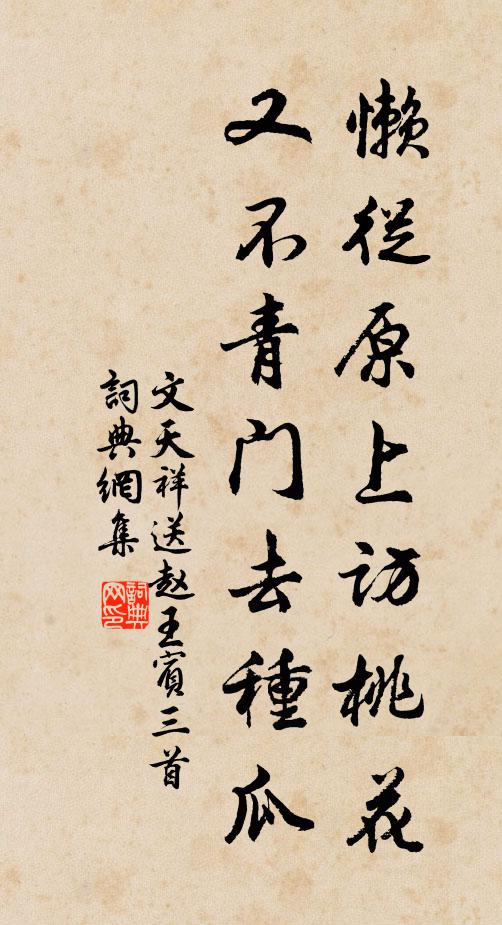 懒從原上访桃花
又不青门去種瓜
文天祥送赵王賓三首
詞典網集
詞典
网印